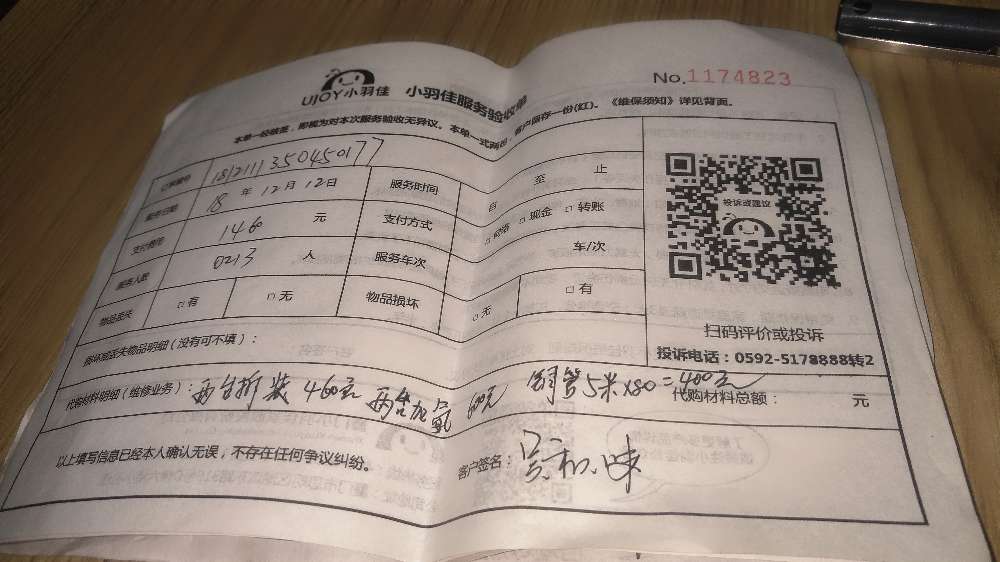 UJOY小羽佳 小羽佳服务验收单 No.1174823
本单一经签签，即视为对本次服务验收无异议。本单一式两份，客户留存一份(红)。《维保须知》详见背面。
订单编号 181211135045017
服务日期 18年12月12日 服务时间 自 至 止
支付费用 1460 元 支付方式 □网络 □现金 □转账
服务人数 0213 人 服务车次 车/次
物品丢失 □有 □无 物品损坏 □无 □有
投诉或建议
扫码评价或投诉
投诉电话：0592-5178888转2
损坏或丢失物品明细（没有可不填）：
代购材料明细（维修业务）：两台拆装460元 两台加氟600元 铜管5米x80=400元
代购材料总额： 元
以上填写信息已经本人确认无误，不存在任何争议纠纷。
客户签名：